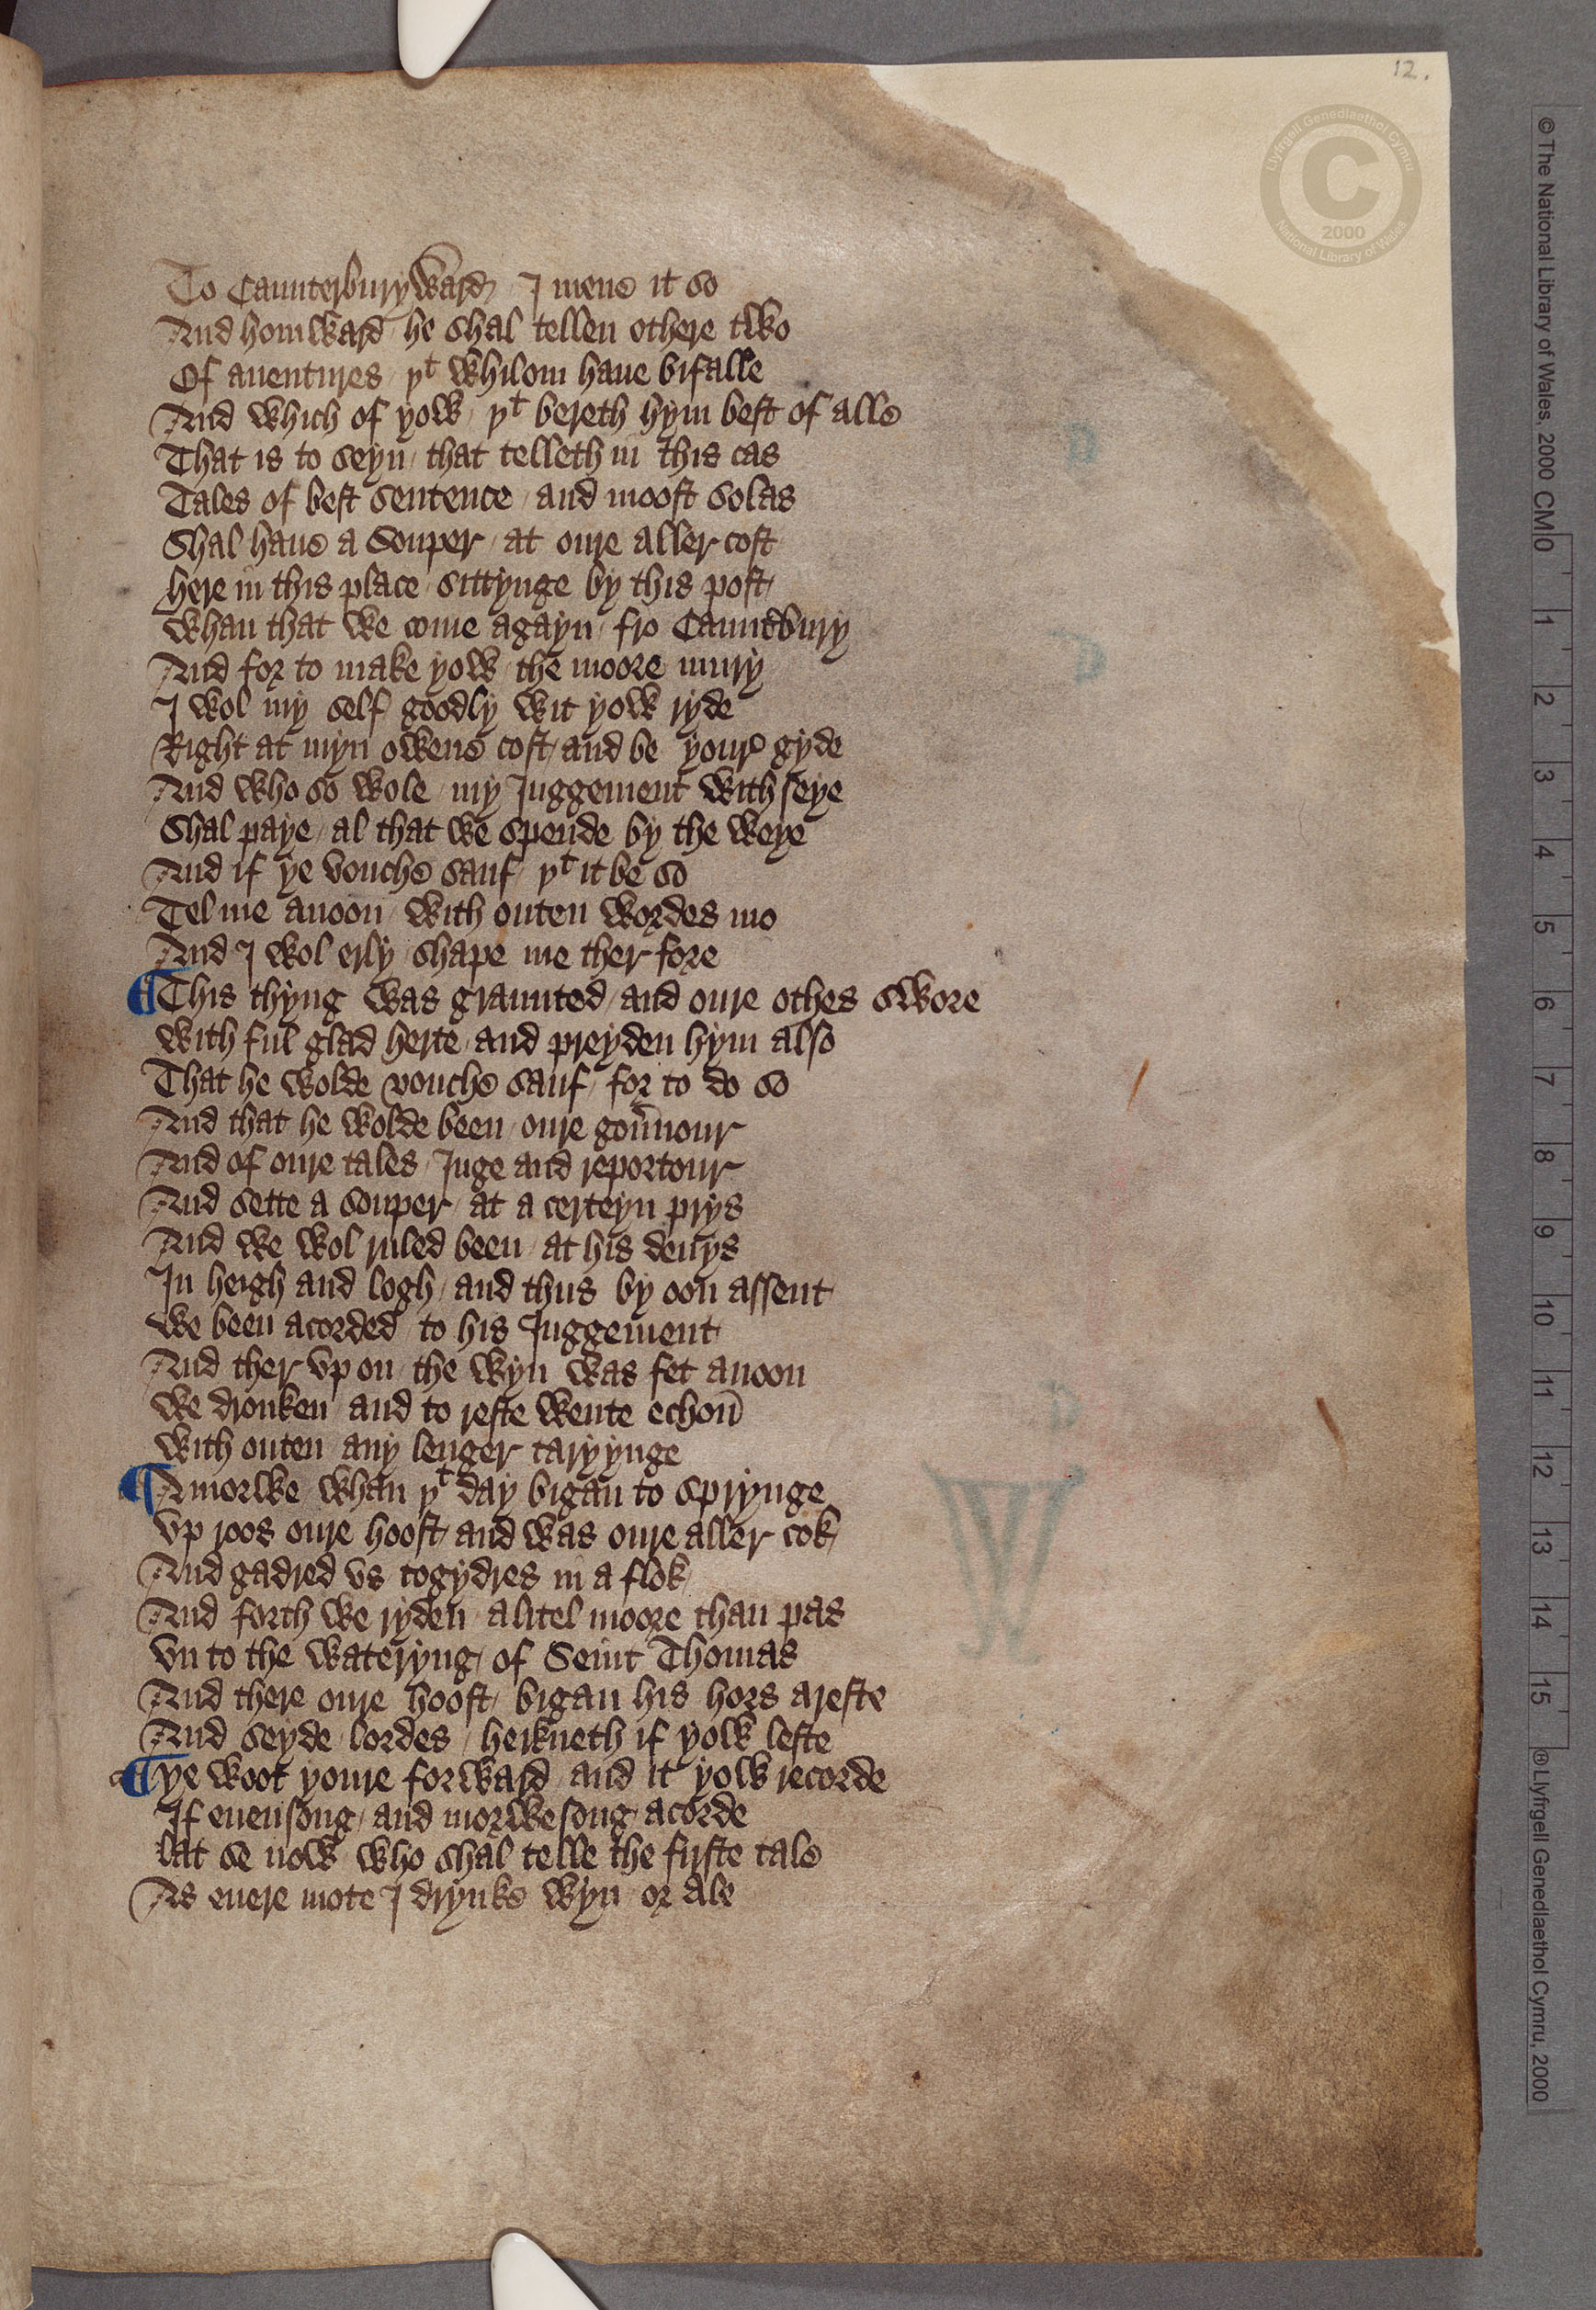 12.
To Caunterburyward / I mene it so
And homward / he shal tellen othere two
Of auentures / þt whilom haue bifalle
And which of yow / þt bereth hym best of alle
That is to seyn / that telleth in this cas
Tales of best sentence / and moost solas
Shal haue a souper / at oure aller cost
Here in this place / sittynge by this post
Whan that we come agayn / fro Cauntbury
And for to make yow / the moore mury
I wol my self / goodly wit yow ryde
Right at myn owene cost / and be your gyde
And who so wole / my Iuggement with seye
Shal paye / al that we spende by the weye
And if ye vouche sauf / þt it be so
Tel me anoon / with outen wordes mo
And I wol erly / shape me ther fore
¶ This thyng was graunted / and oure othes swore
With ful glad herte / and preyden hym also
That he wolde vouche sauf / for to do so
And that he wolde been / oure gouernour
And of oure tales / Iuge and reportour
And sette a souper / at a certeyn prys
And we wol ruled been / at his deuys
In heigh and logh / and thus by oon assent
We been acorded / to his Iuggement
And ther vp on / the wyn was fet anoon
We dronken / and to reste wente echon
With outen / any lenger taryynge
¶ Amorwe / whan þt day bigan to sprynge
Vp roos oure hoost / and was oure aller cok
And gadred vs togydres in a flok
And forth we ryden / alitel moore than pas
Vn to the wateryng / of Seint Thomas
And there oure hoost / bigan his hors areste
And seyde / lordes / herkneth if yow leste
¶ Ye woot youre forward / and it yow recorde
If euensong / and morwesong / acorde
Lat se now who shal telle the firste tale
As euere mote I drynke wyn or ale
D
D
D
W
Llyfrgell Genedlaethol Cymru
C
2000
National Library of Wales
© The National Library of Wales, 2000 CM
0 1 2 3 4 5 6 7 8 9 10 11 12 13 14 15
® Llyfrgell Genedlaethol Cymru, 2000